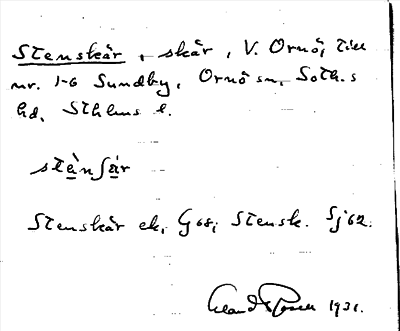 Stenskär, skär, V. Ornö, till
nr. 1-6 Sundby, Ornö sn, Soth.s
hd, Sthlms l.
stènʃär
Stenskär ek, G68; Stensk. Sj62.
1931.